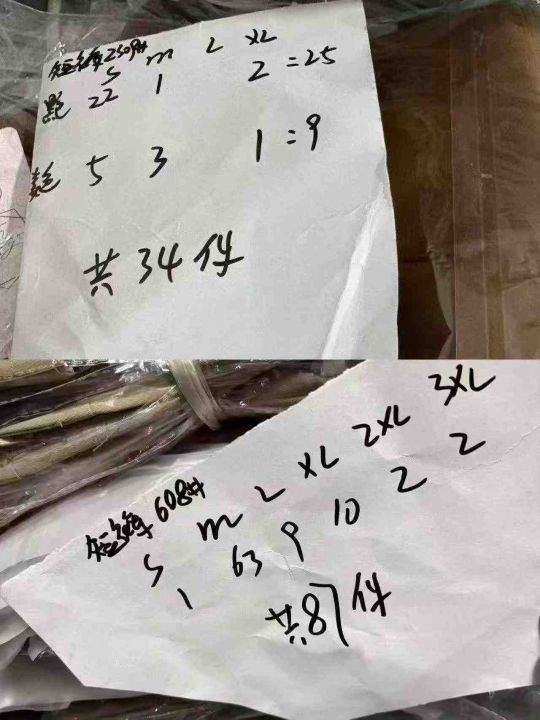 S m L XL
黑色 22 1 2 = 25
5 3 1 = 9
共 34 件
608#
S m L XL 2XL 3XL
1 63 9 10 2 2
共 87 件